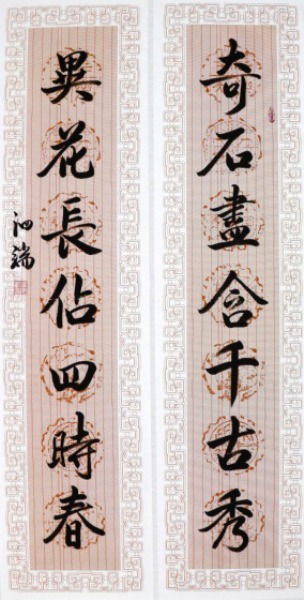 奇石盡含千古秀
異花長佔四時春